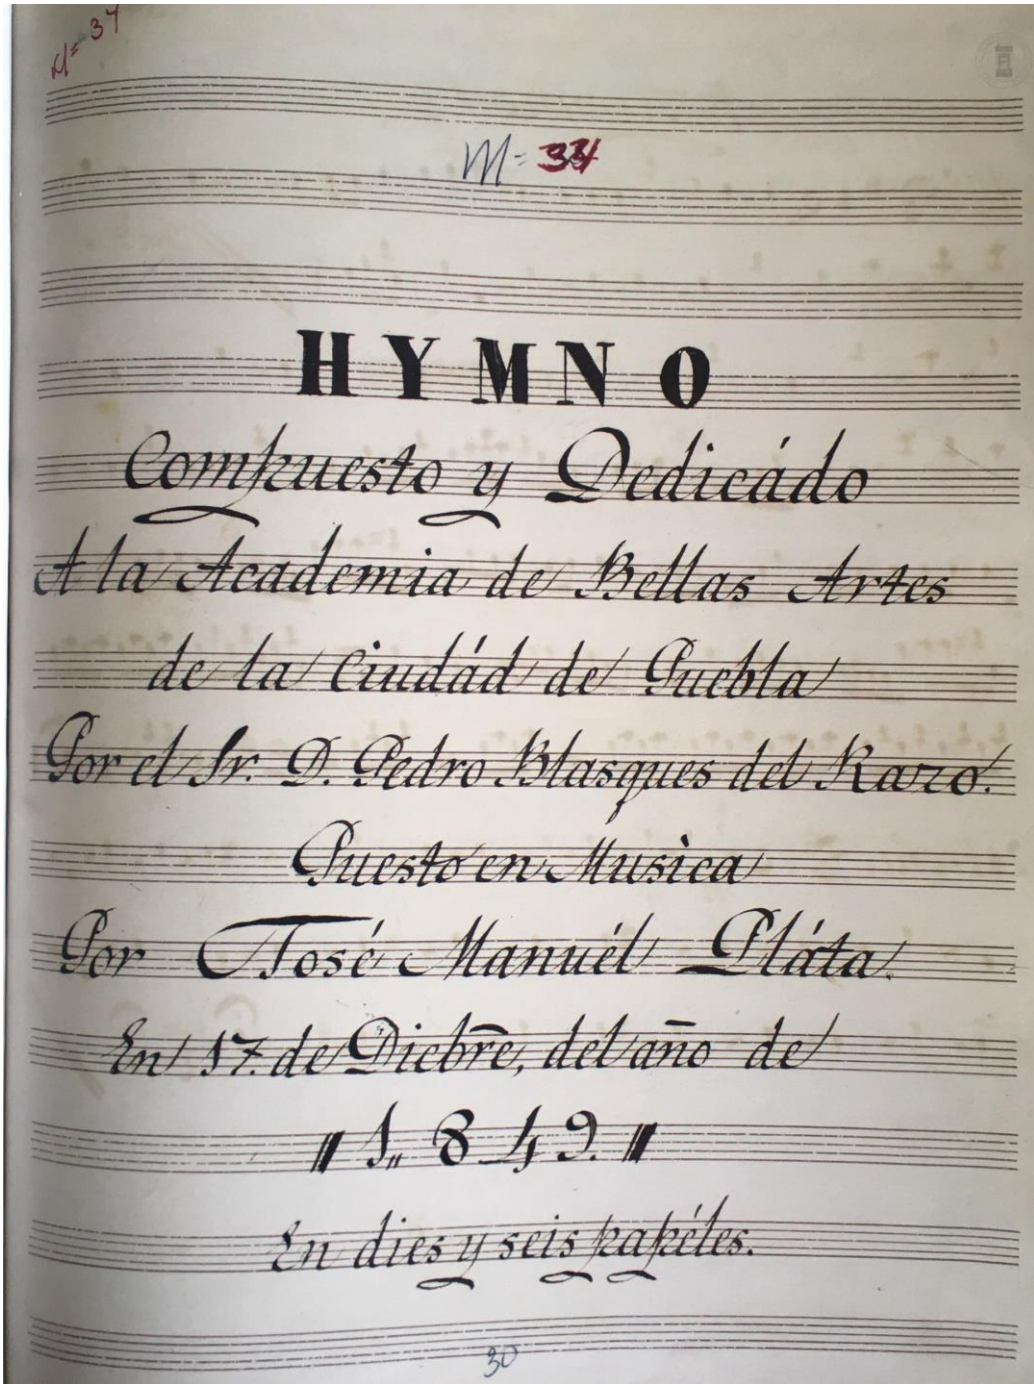 M= 34
M= 34
HYMNO
Compuesto y Dedicádo
A la Academia de Bellas Artes
de la Ciudád de Puebla
Por el Sr. D. Pedro Blasques del Razo.
Puesto en Musica
Por José Manuél Pláta.
En 17. de Diebr̃e, del año de
1,, 849.
En dies y seis papéles.
30